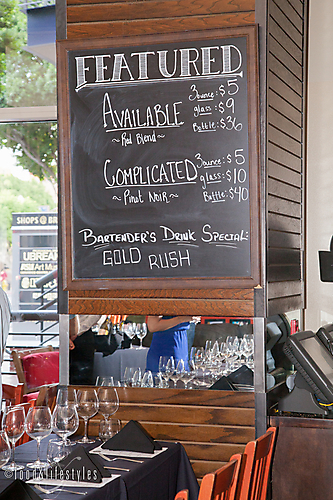 FEATURED
AVAILABLE
~ Red Blend ~
3ounce: $5
glass: $9
Bottle: $36
COMPLICATED
~ Pinot Noir ~
3ounce: $5
glass: $10
Bottle: $40
BARTENDER'S DRINK SPECIAL:
GOLD RUSH
SHOPS @ B
UBREA
Art Mus
©food&lifestyles